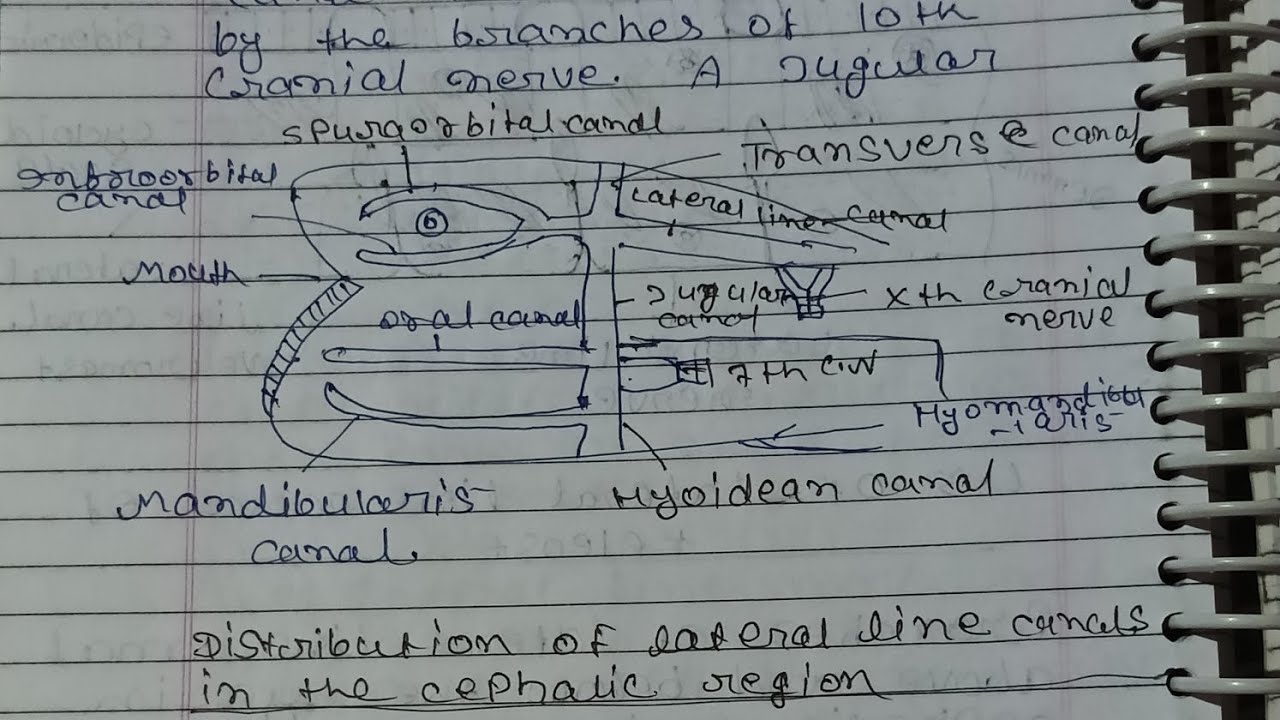 by the branches of 10th
Cranial nerve. A Jugular
spuraorbital canal
Transverse canal
Infraorbital
canal
Lateral line canal
Mouth
Jugular
canal
Xth cranial
nerve
oral canal
7th C.N
Hyomandibu
-laris
Mandibularis
canal.
Hyoidean canal
Distribution of lateral line canals
in the cephalic region